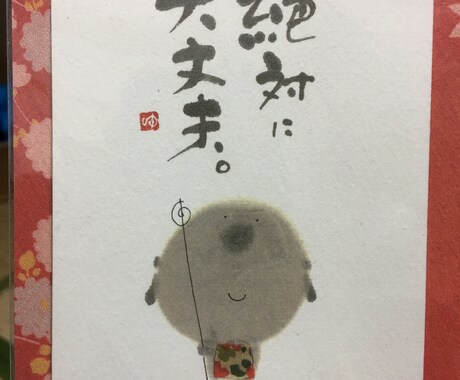 絶対に
大丈夫。
ゆ